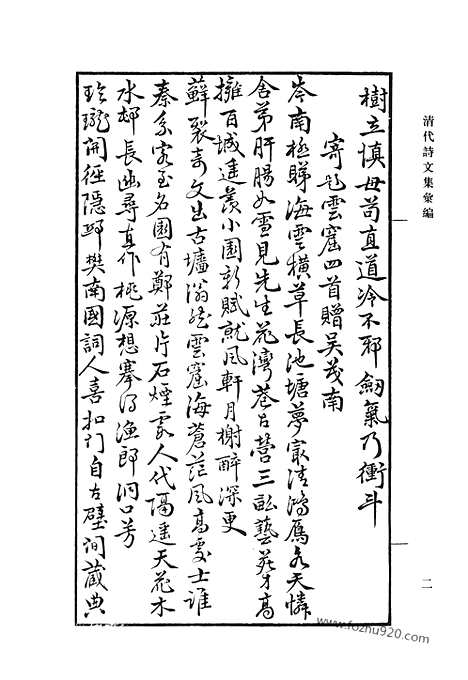 清代詩文集彙編
二
樹立慎毋苟直道冷不邪劒氣乃衝斗
寄題雲窟四首贈吳茂南
岑南極睇海雲橫草長池塘夢最清鴻雁各天憐
舍弟肝腸如雪見先生花灣巷古營三畝藝苑才高
擁百城遙羨小園彩賦就風軒月榭醉深更
蘚裂奇文出古壚滃然雲窟海蒼茫風高處士誰
秦系客至名園有鄭莊片石煙霞人代隔遙天花木
水邨長幽尋直作桃源想搴得漁郎洞口芳
玲瓏開徑隱邨樊南國詞人喜扣門自古壁間藏典
www.fozhu920.com